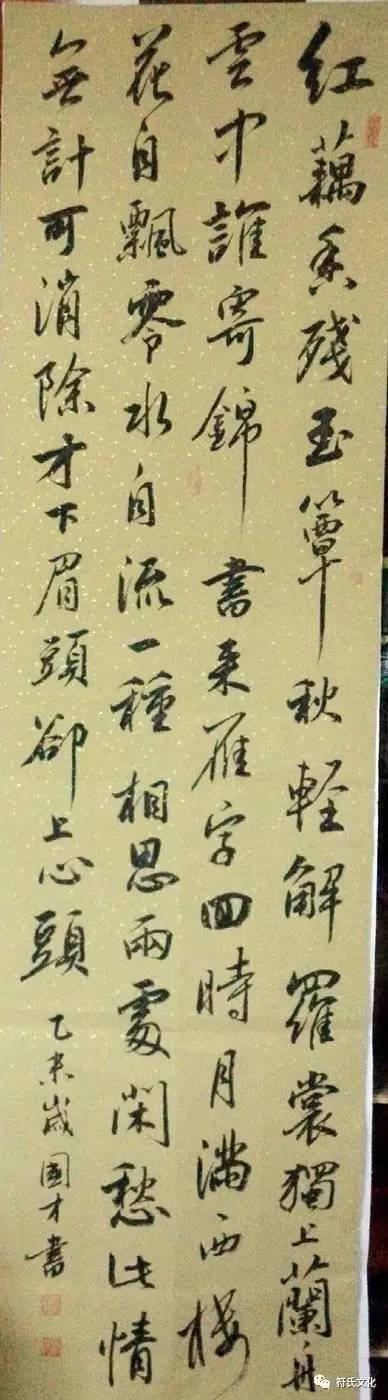 红藕香残玉簟秋軽解羅裳獨上蘭舟
雲中誰寄錦書来雁字回時月滿西楼
花自飄零水自流一種相思兩處閑愁此情
無計可消除才下眉頭卻上心頭
乙未歲國才書
符氏文化